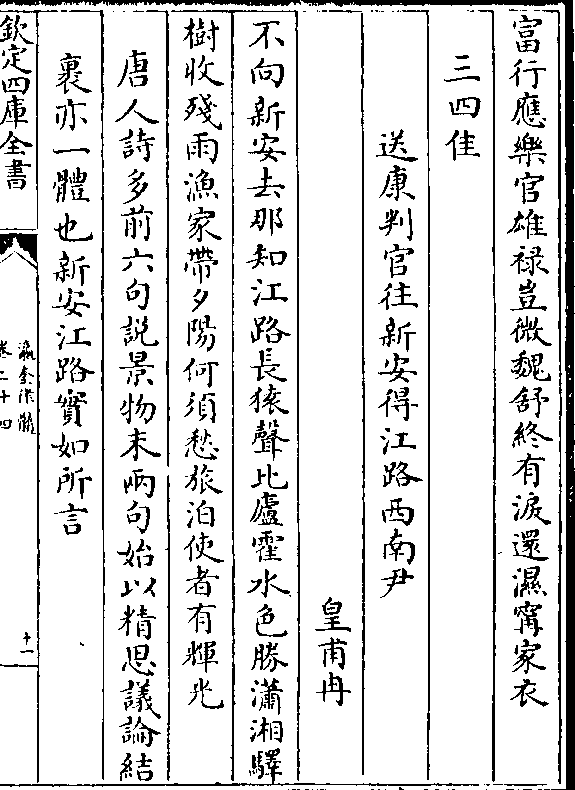 富行應樂官雄禄豈微魏舒終有淚還濕寗家衣
三四佳
送康判官往新安得江路西南尹
皇甫冉
不向新安去那知江路長猿聲比廬霍水色勝瀟湘驛
樹收殘雨漁家帶夕陽何須愁旅泊使者有輝光
唐人詩多前六句説景物末兩句始以精思議論結
裹亦一體也新安江路實如所言
欽定四庫全書
瀛奎律髓
卷二十四
十一